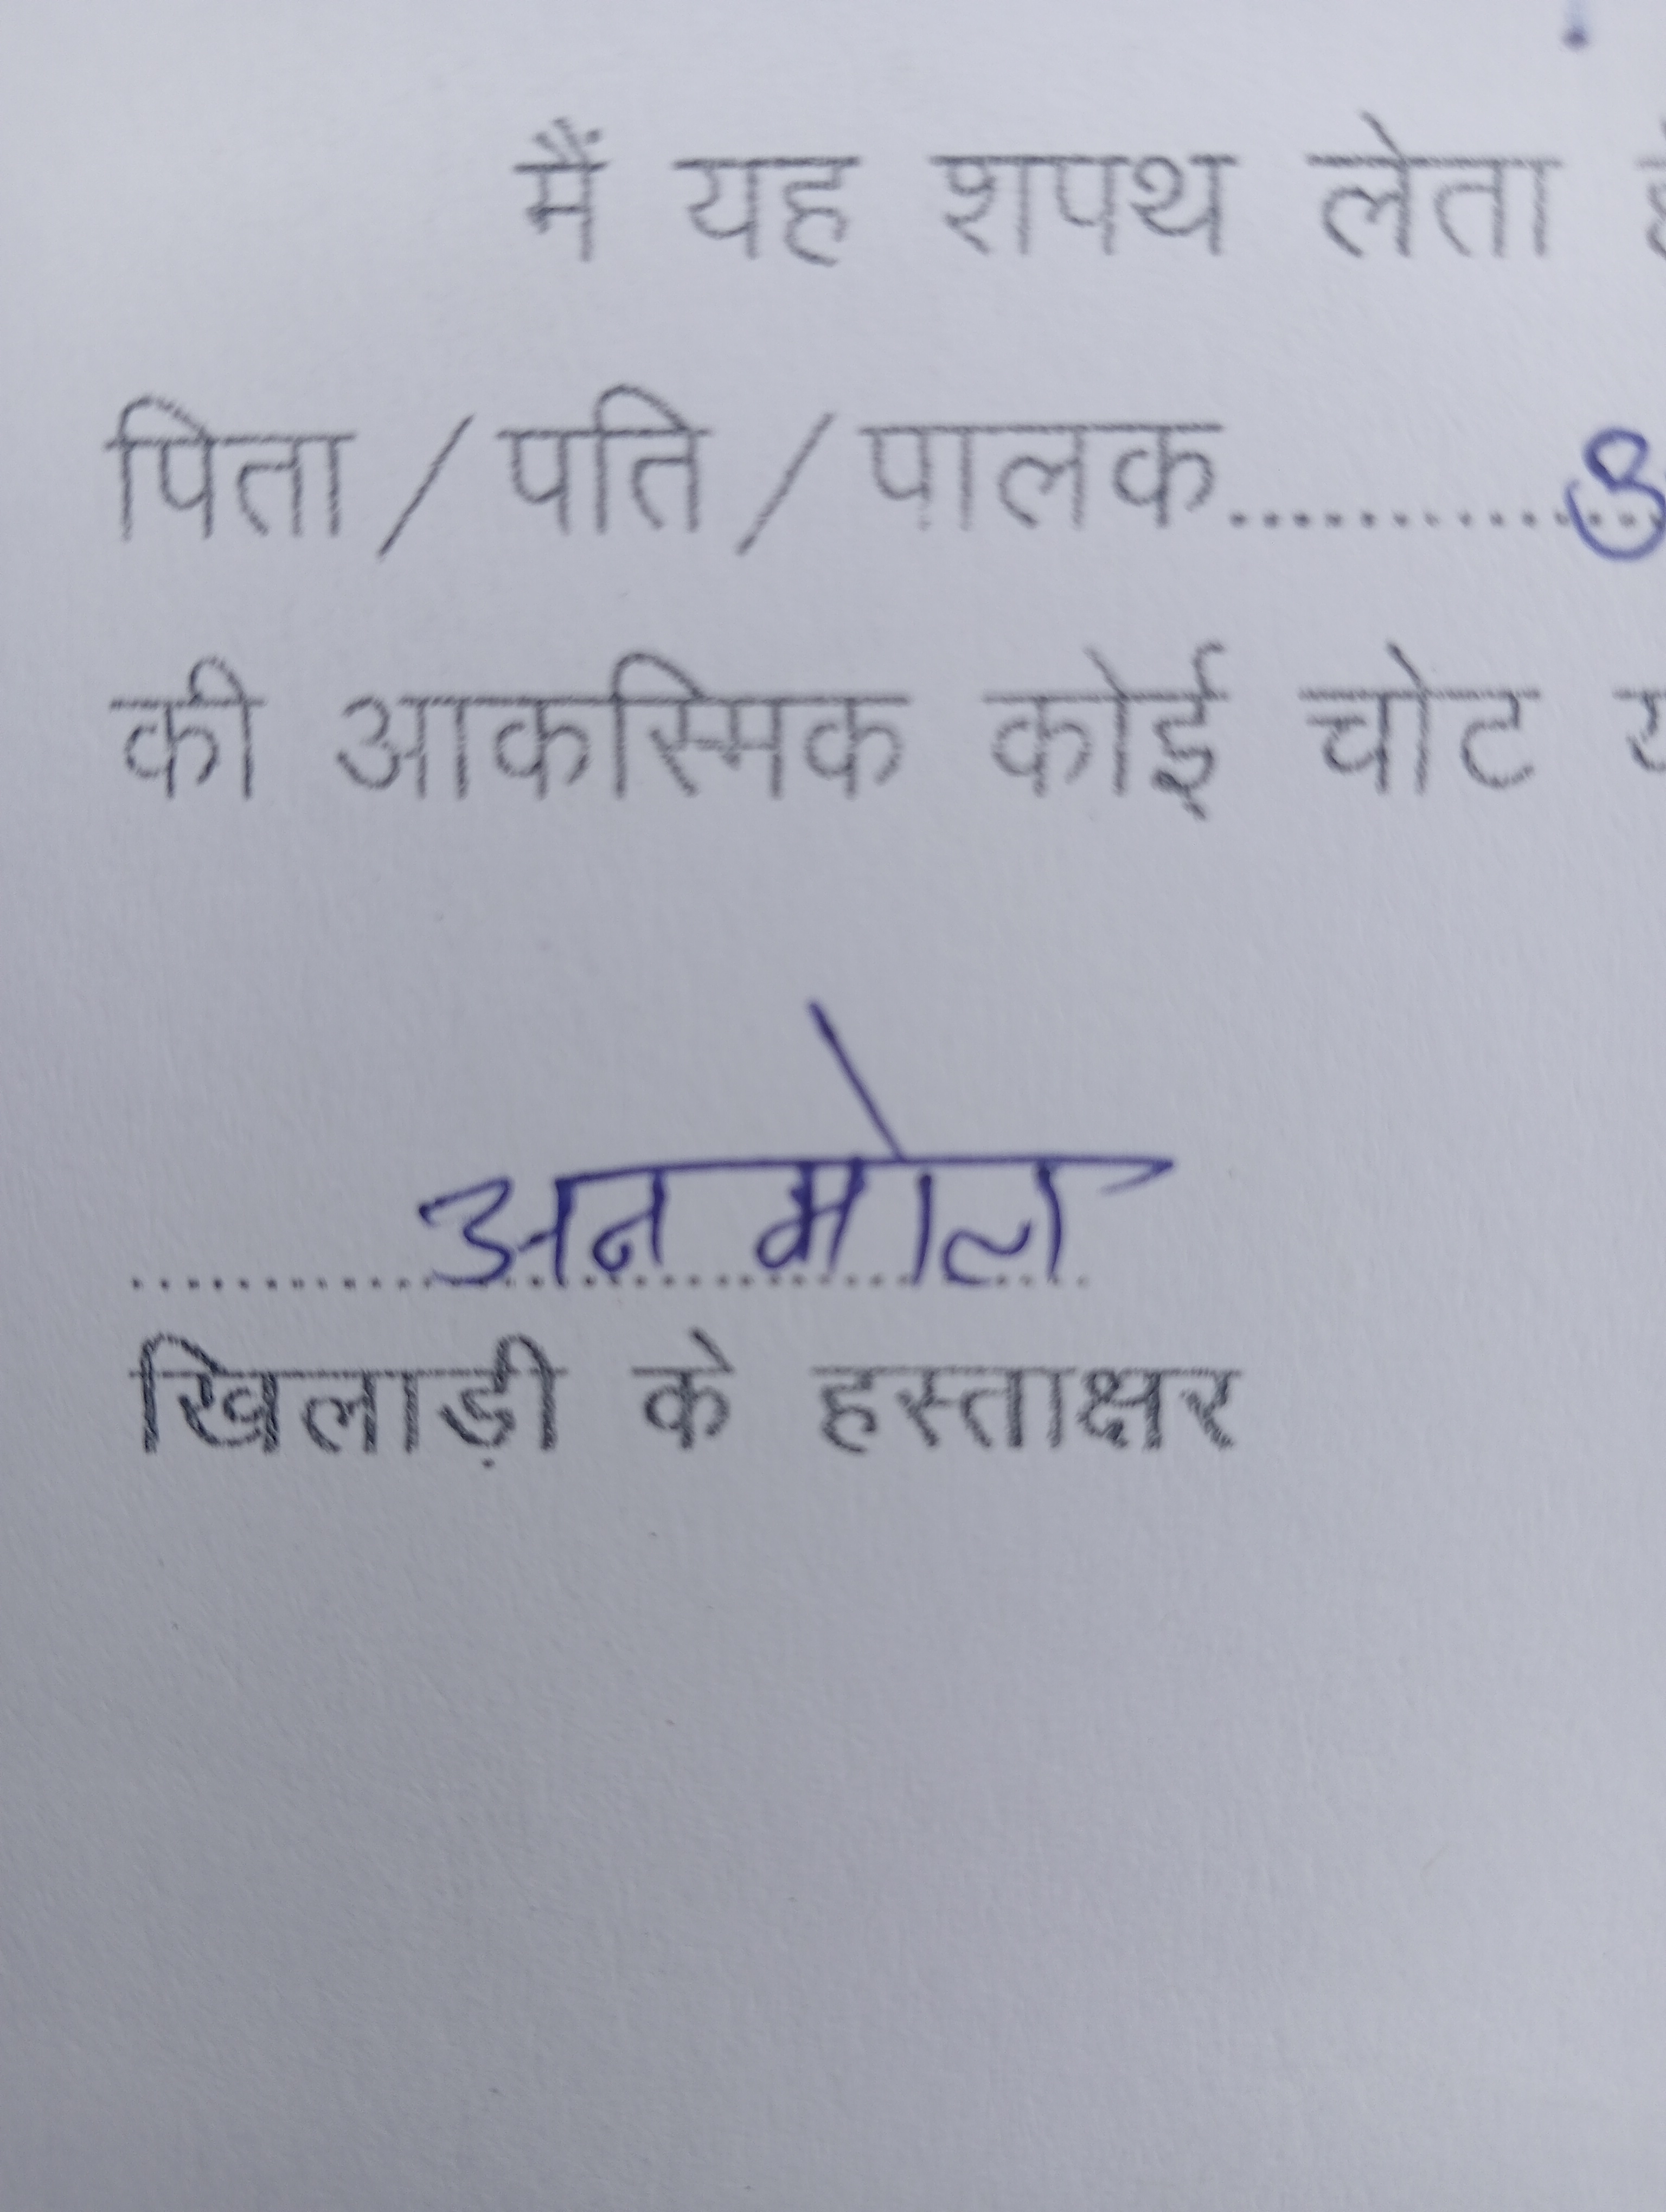 मैं यह शपथ लेता
पिता / पति / पालक............
की आकस्मिक कोई चोट
अनमोल
खिलाड़ी के हस्ताक्षर